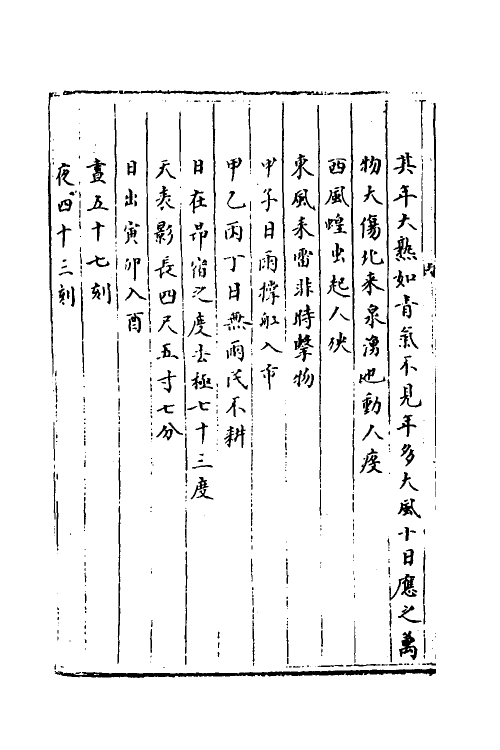 其年大熟如青氣不見年多大風十日應之萬
物大傷北來泉湧地動人疫
西風蝗虫起人殃
東風来雷非時擊物
甲子日雨撑船入市
甲乙丙丁日無雨民不耕
日在昴宿之度去極七十三度
天表影長四尺五寸七分
日出寅卯入酉
晝五十七刻
夜四十三刻